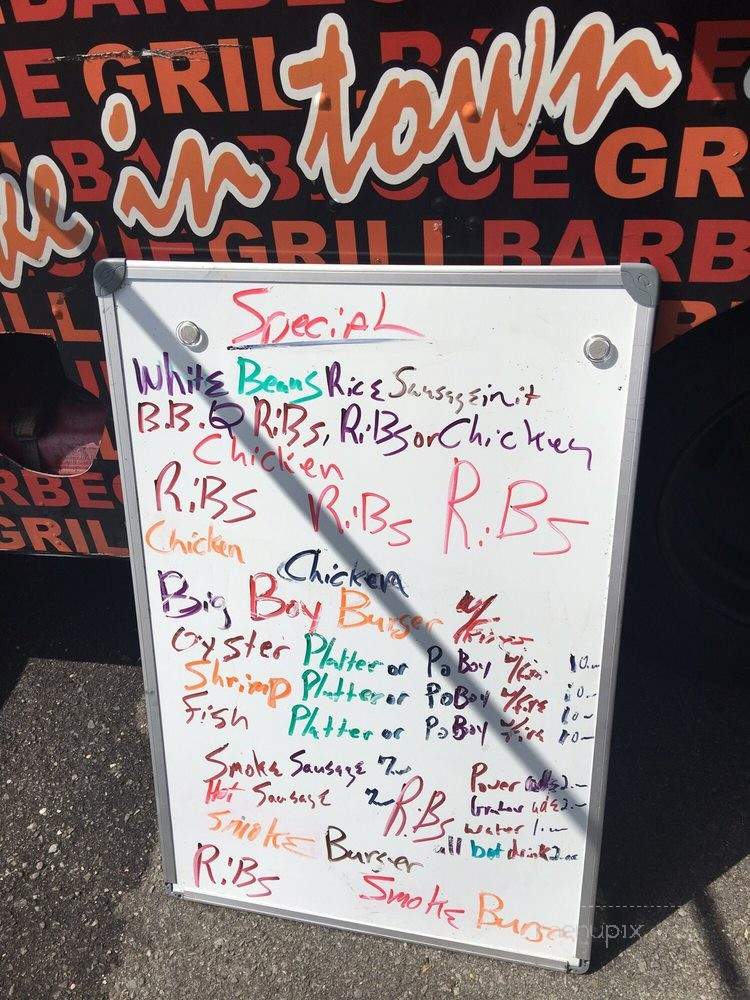 BARBECUE
GRILL BARBE
in town
BARBECUE GR
GRILL BARB
Special
White Beans Rice Sausage in it
B.B.Q RiBs, RiBs or Chicken
Chicken
RiBs RiBs RiBs
Chicken
Chicken
Big Boy Burger w/ Fries
Oyster Platter or PoBoy w/ Fries 10.—
Shrimp Platter or PoBoy w/ Fries 10.—
Fish Platter or PoBoy w/ Fries 10.—
Smoke Sausage 7.— Power ade 2.—
Hot Sausage 7.— RiBs ade 2.—
water 1.—
Smoke Burger all bot drink 2.00
RiBs
Smoke Burger
menupix